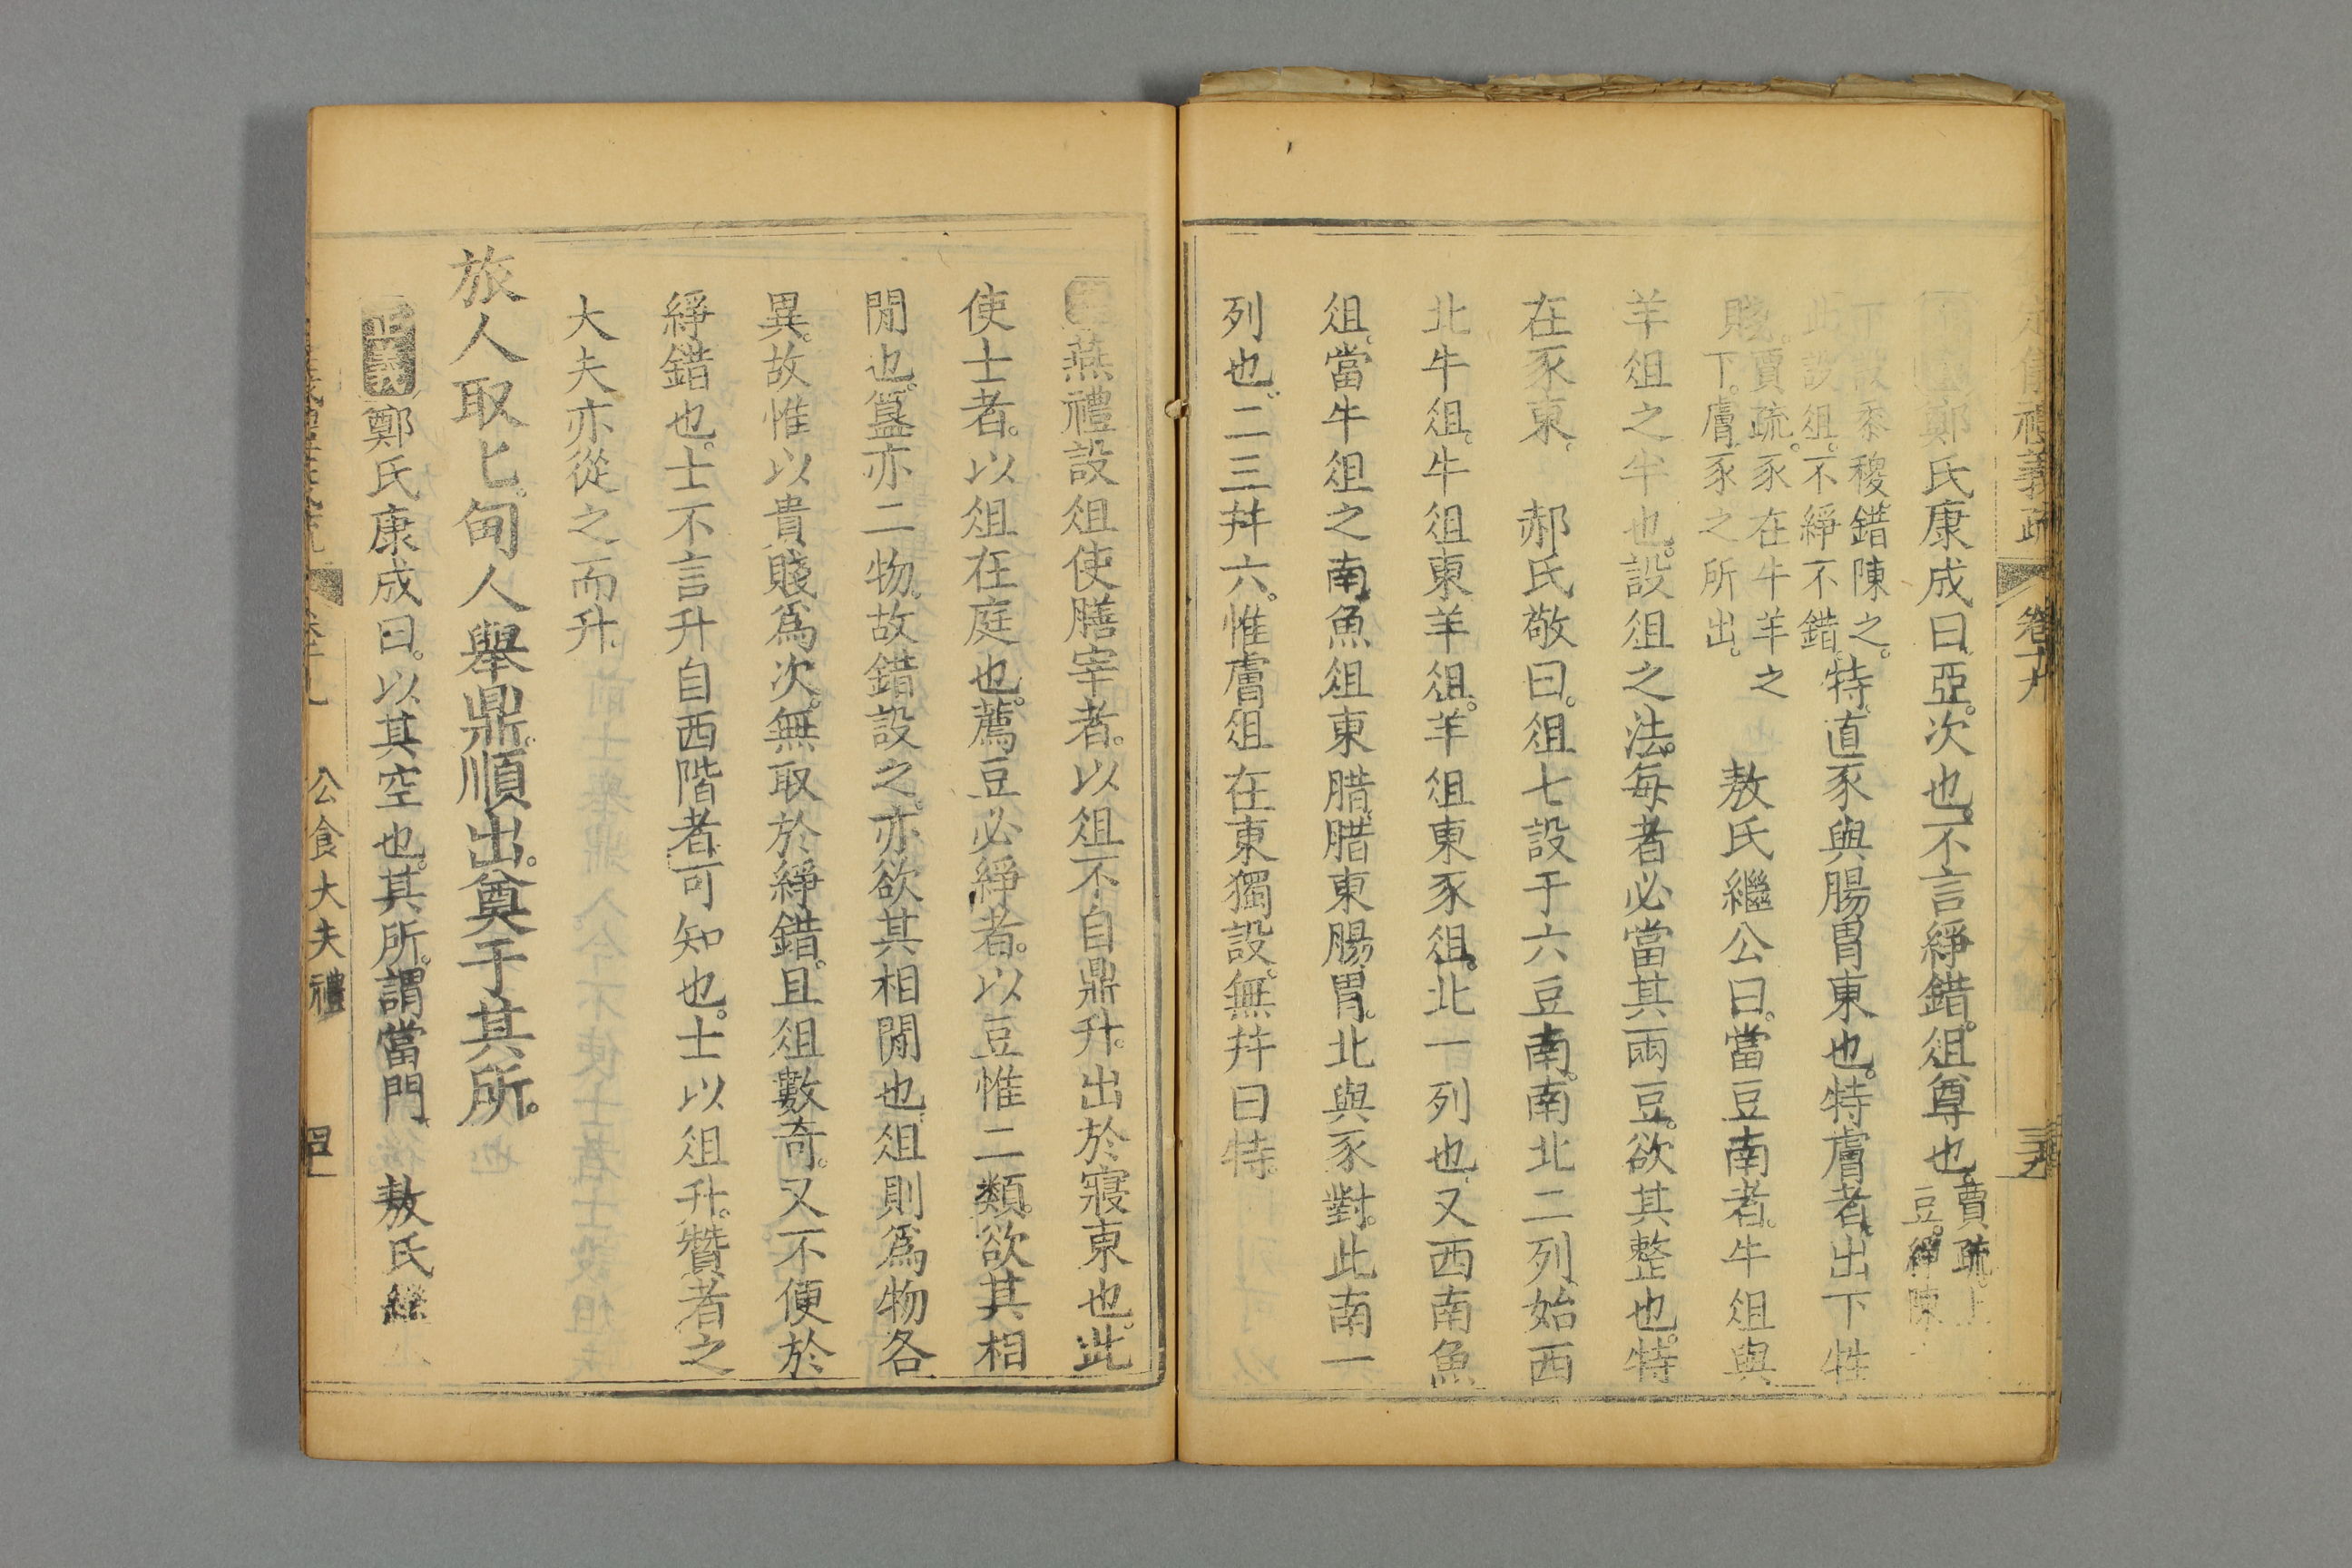 定儀禮義疏 卷十九
鄭氏康成曰亞次也不言綪錯俎尊也 賈疏上
豆綪陳
下設黍稷錯陳之
此設俎不綪不錯 特直豕與腸胃東也特膚者出下牲
賤賈疏豕在牛羊之
下膚豕之所出 敖氏繼公曰當豆南者牛俎與
羊俎之半也設俎之法每者必當其兩豆欲其整也特
在豕東 郝氏敬曰俎七設于六豆南南北二列始西
北牛俎牛俎東羊俎羊俎東豕俎北一列也又西南魚
俎當牛俎之南魚俎東腊腊東腸胃北與豕對此南一
列也二三幷六惟膚俎在東獨設無幷曰特
燕禮設俎使膳宰者以俎不自鼎升出於寢東也此
使士者以俎在庭也薦豆必綪者以豆惟二類欲其相
閒也簋亦二物故錯設之亦欲其相閒也俎則爲物各
異故惟以貴賤爲次無取於綪錯且俎數奇又不便於
綪錯也士不言升自西階者可知也士以俎升贊者之
大夫亦從之而升
旅人取匕甸人舉鼎順出奠于其所
正義鄭氏康成曰以其空也其所謂當門 敖氏繼
公食大夫禮